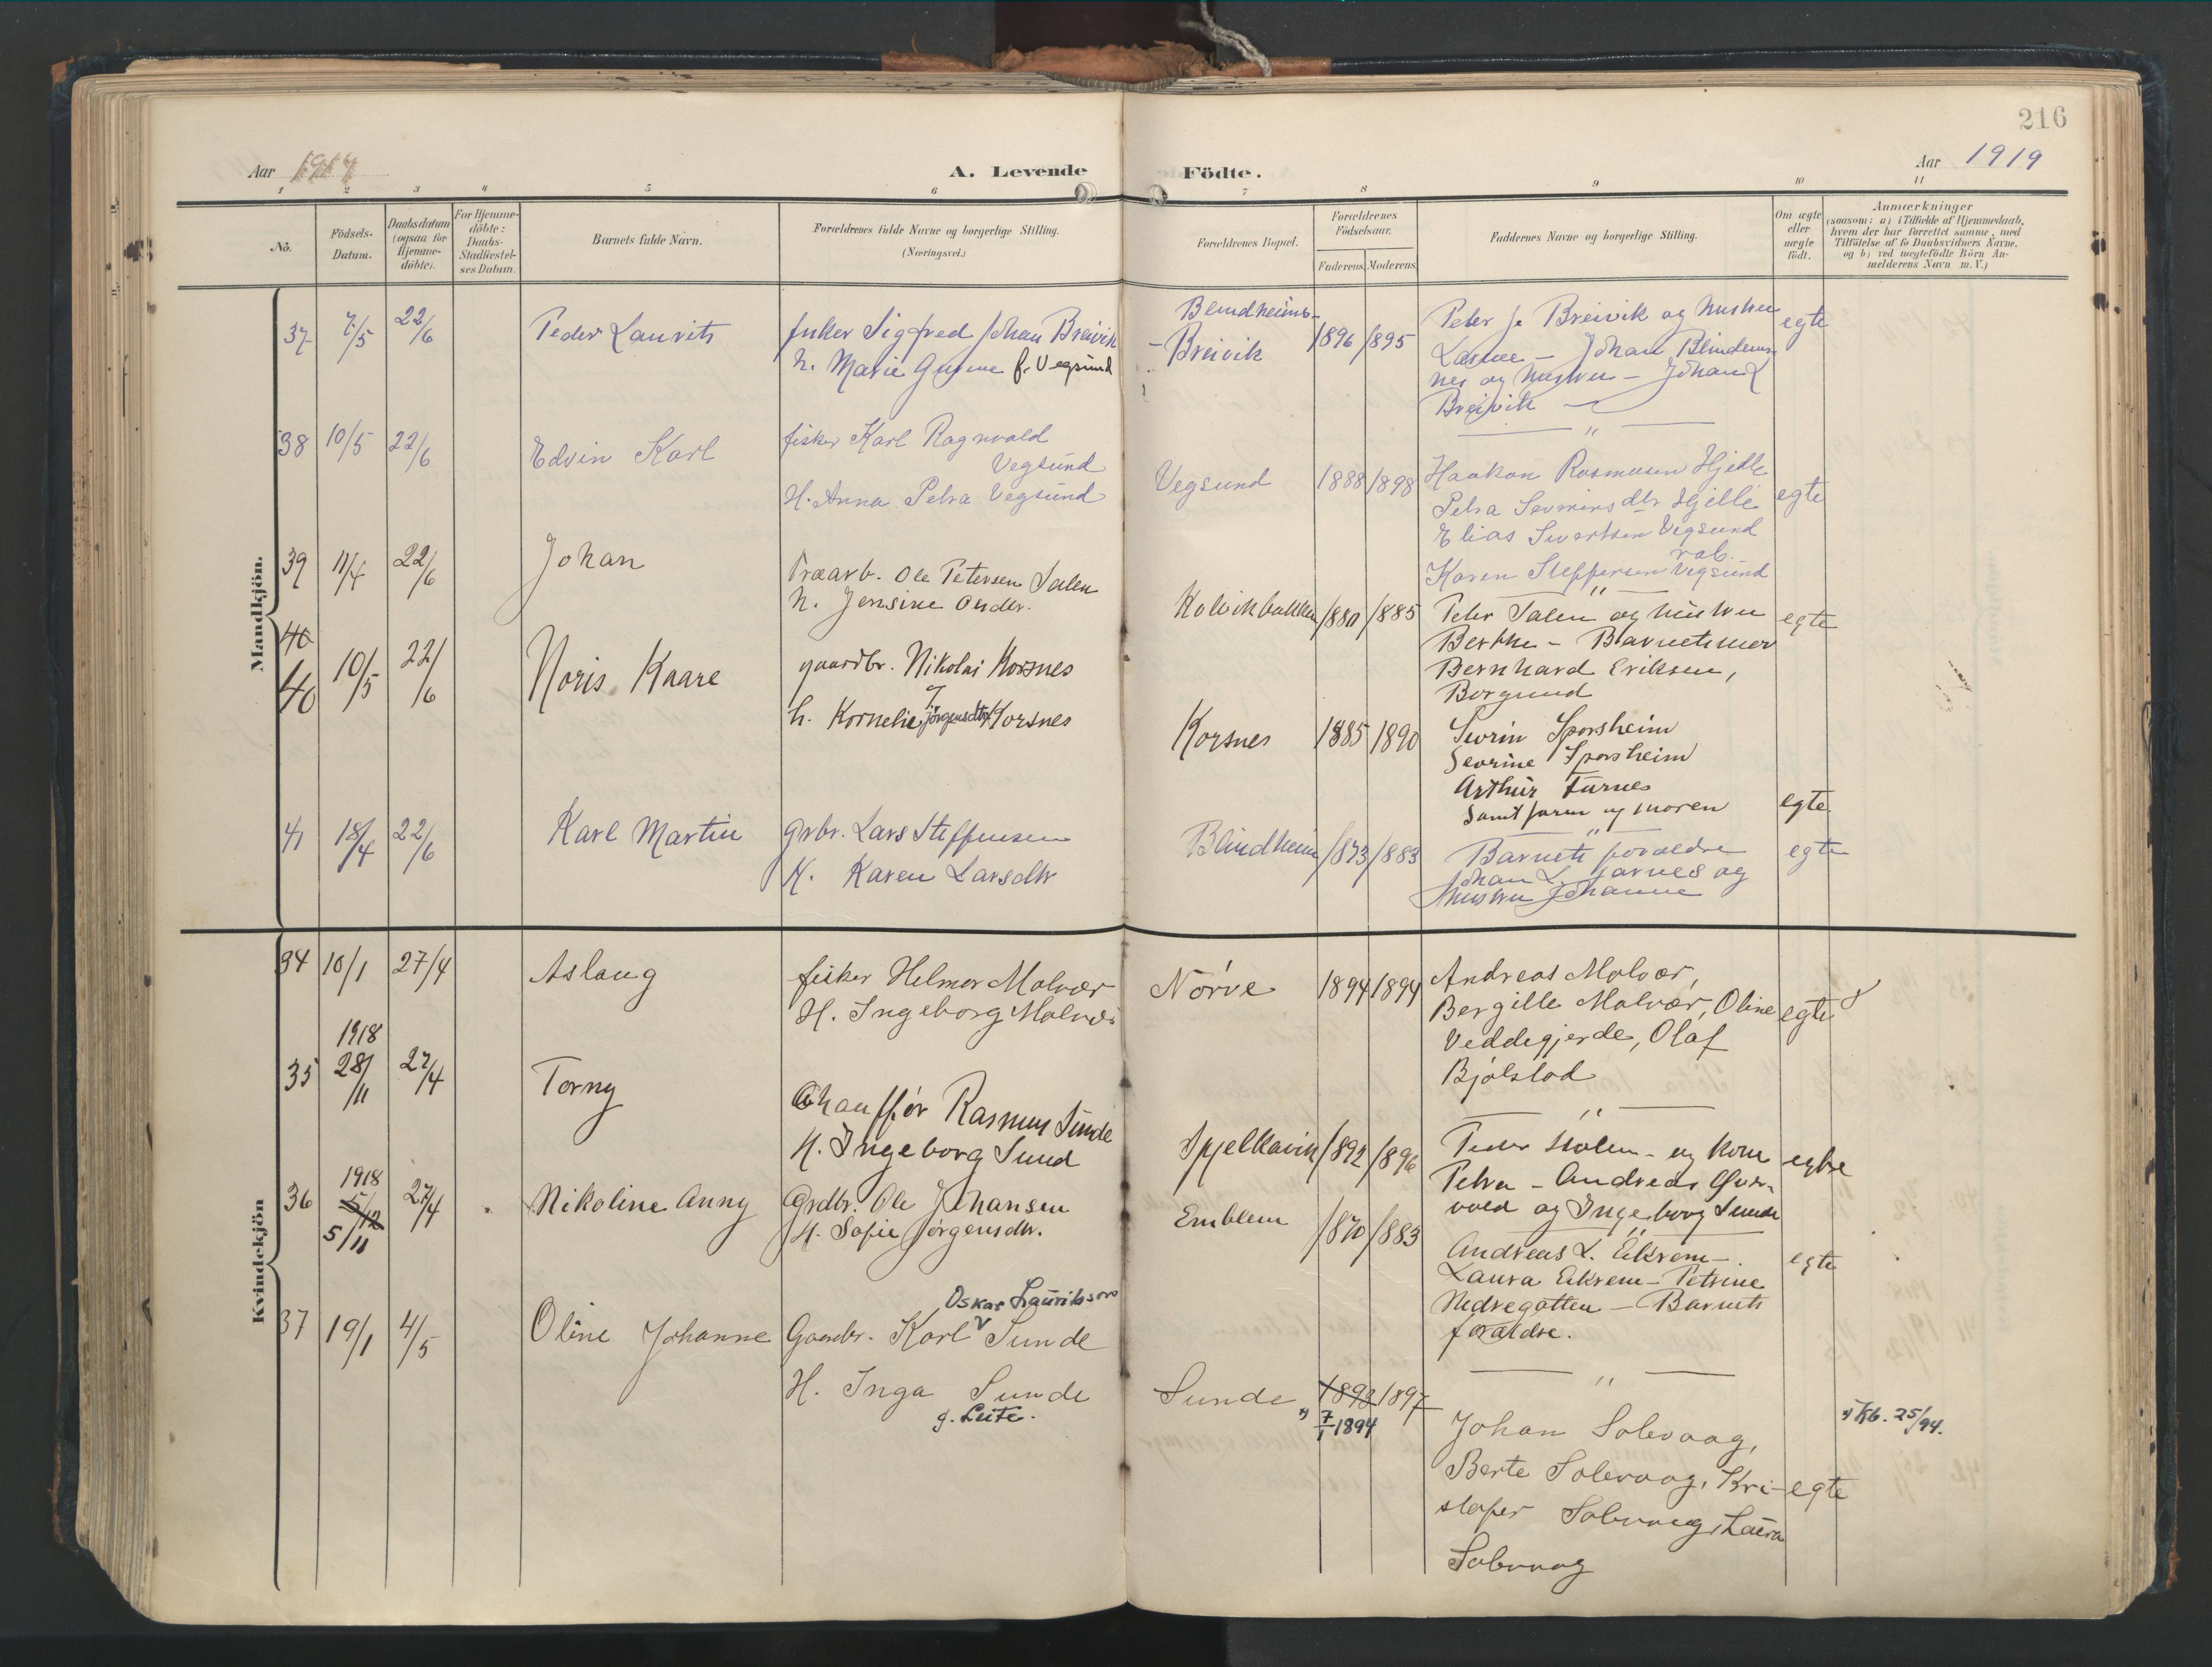 216
Aar 1919
A. Levende Födte.
Aar 1919
1 2 3 4 5 6 7 8 9 10 11
No.
Födsels-Datum.
Daabsdatum (ogsaa for Hjemme-döbte).
For Hjemme-döbte: Daabs-Stadfæstel-ses Datum.
Barnets fulde Navn.
Forældrenes fulde Navne og borgerlige Stilling.
(Næringsvei.)
Forældrenes Bopæl.
Forældrenes Födselsaar.
Faderens. Moderens.
Faddernes Navne og borgerlige Stilling.
Om ægte eller uægte födt.
Anmærkninger
(saasom: a) i Tilfælde af Hjemmedaab,
hvem der har forrettet samme, med
Tilföielse af to Daabsvidners Navne,
og b) ved uægtefödte Börn An-
melderens Navn m. V.)
Mandkjön.
37 7/5 22/6 Peder Laurits
fisker Sigfred Johan Breivik
h. Marie f. Vegsund
Blindheims-
-Breivik 1896 1895
Peter J. Breivik og hustru
Johan Blindems-
nes og hustru - Johan L
Breivik
egte
"
38 10/5 22/6 Edvin Karl
fisker Karl Ragnvald
Vegsund
H. Anna Petra Vegsund
Vegsund 1888 1898
Haakon Rasmusen Hjelle
Petra Severinsdtr Hjelle
Elias Sivertsen Vegsund
Karen Steffensen Vegsund
egte
"
39 11/4 22/6 Johan
Træarb. Ole Petersen Salen
h. Jensine Olsdtr.
Kolvikbakken 1880 1885
Peter Salen og hustru
Berthe - Barnets mor
Bernhard Eriksen,
Borgund
egte
40
40 10/5 22/6 Noris Kaare
gaardbr. Nikolai Korsnes
h. Kornelie Jørgensdtr Korsnes
Korsnes 1885 1890
Sevrin Sporsheim
Sevrine Sporsheim
Arthur Furnes
Samt faren og moren
egte
"
41 18/4 22/6 Karl Martin
Grbr. Lars Steffensen
H. Karen Larsdtr
Blindheim 1873 1883
Barnets foræeldre
Johan L. og
hustru Johanne
egte
Kvindekjön
34 10/1 27/4 Aslaug
fisker Helmer Molvær
H. Ingeborg Molvær
Nørve 1894 1894
Andreas Molvær,
Bergille Molvær, Oline
Veddegjerde, Olaf
Bjølstad
egte
"
1918
35 28/11 27/4 Torny
Chauffør Rasmus Sunde
H. Ingeborg Sund
Spjelkavik 1892 1896
Peder Holen - og kone
Petra - Andreas
vold og Ingeborg Sunde
egte
"
1918
36 5/12 27/4 Nikoline Anny
5/11
Grdbr. Ole Johansen
H. Sofie Jørgensdtr.
Emblem 1870 1883
Andreas L. Eikrem -
Laura Eikrem - Petrine
Nedregotten - Barnets
forældre.
egte
"
37 19/1 4/5 Oline Johanne
Oskar Lauritssøn
Gaardbr. Karl Sunde
H. Inga Sunde
f. Leite.
Sunde 1893 1897
*) 7/1 1894
Johan Solevaag,
Berte Solevaag, Kri-
stofer Solevaag, Laura
Solevaag
egte
*) Kb. 25/94.